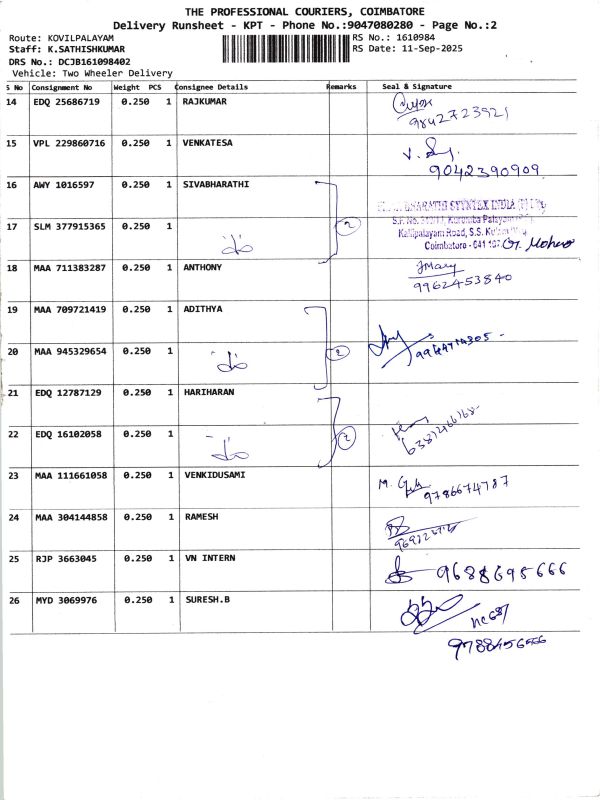 THE PROFESSIONAL COURIERS, COIMBATORE
Delivery Runsheet - KPT - Phone No.:9047080280 - Page No.:2
Route: KOVILPALAYAM RS No.: 1610984
Staff: K.SATHISHKUMAR RS Date: 11-Sep-2025
DRS No.: DCJB161098402
Vehicle: Two Wheeler Delivery
S No Consignment No Weight PCS Consignee Details Remarks Seal & Signature
14 EDQ 25686719 0.250 1 RAJKUMAR
9842723921
15 VPL 229860716 0.250 1 VENKATESA
9042390909
16 AWY 1016597 0.250 1 SIVABHARATHI
2
17 SLM 377915365 0.250 1
Kallipalayam Road, S.S.
Coimbatore - 641
18 MAA 711383287 0.250 1 ANTHONY
JMary
9962453840
19 MAA 709721419 0.250 1 ADITHYA
20 MAA 945329654 0.250 1 2
21 EDQ 12787129 0.250 1 HARIHARAN
22 EDQ 16102058 0.250 1 2
23 MAA 111661058 0.250 1 VENKIDUSAMI
9786674787
24 MAA 304144858 0.250 1 RAMESH
25 RJP 3663045 0.250 1 VN INTERN 9688695666
26 MYD 3069976 0.250 1 SURESH.B